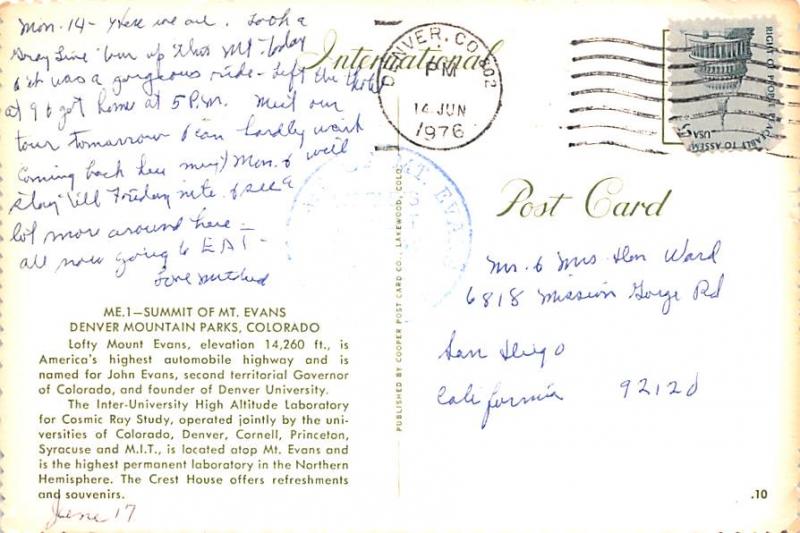 Mon. 14 - Here we are. Took a
Gray Line tour up this Mt. today
& it was a gorgeous ride - Left the Hotel
at 9 & got home at 5 P.M. Meet our
tour tomarrow & can hardly wait
Coming back here next Mon. & we'll
stay 'till Tuesday nite & see a
lot more around here -
all now going to EAT -
Love Mitched
ME.1—SUMMIT OF MT. EVANS
DENVER MOUNTAIN PARKS, COLORADO
Lofty Mount Evans, elevation 14,260 ft., is
America's highest automobile highway and is
named for John Evans, second territorial Governor
of Colorado, and founder of Denver University.
The Inter-University High Altitude Laboratory
for Cosmic Ray Study, operated jointly by the uni-
versities of Colorado, Denver, Cornell, Princeton,
Syracuse and M.I.T., is located atop Mt. Evans and
is the highest permanent laboratory in the Northern
Hemisphere. The Crest House offers refreshments
and souvenirs.
June 17
PUBLISHED BY COOPER POST CARD CO., LAKEWOOD, COLO.
International
DENVER, CO 802
PM
14 JUN
1976
MT. EVANS
RIGHT OF PEOPLE PEACEABLY TO ASSEM
USA
Post Card
Mr. & Mrs Don Ward
6818 Mission Gorge Rd
San Diego
California 92120
.10